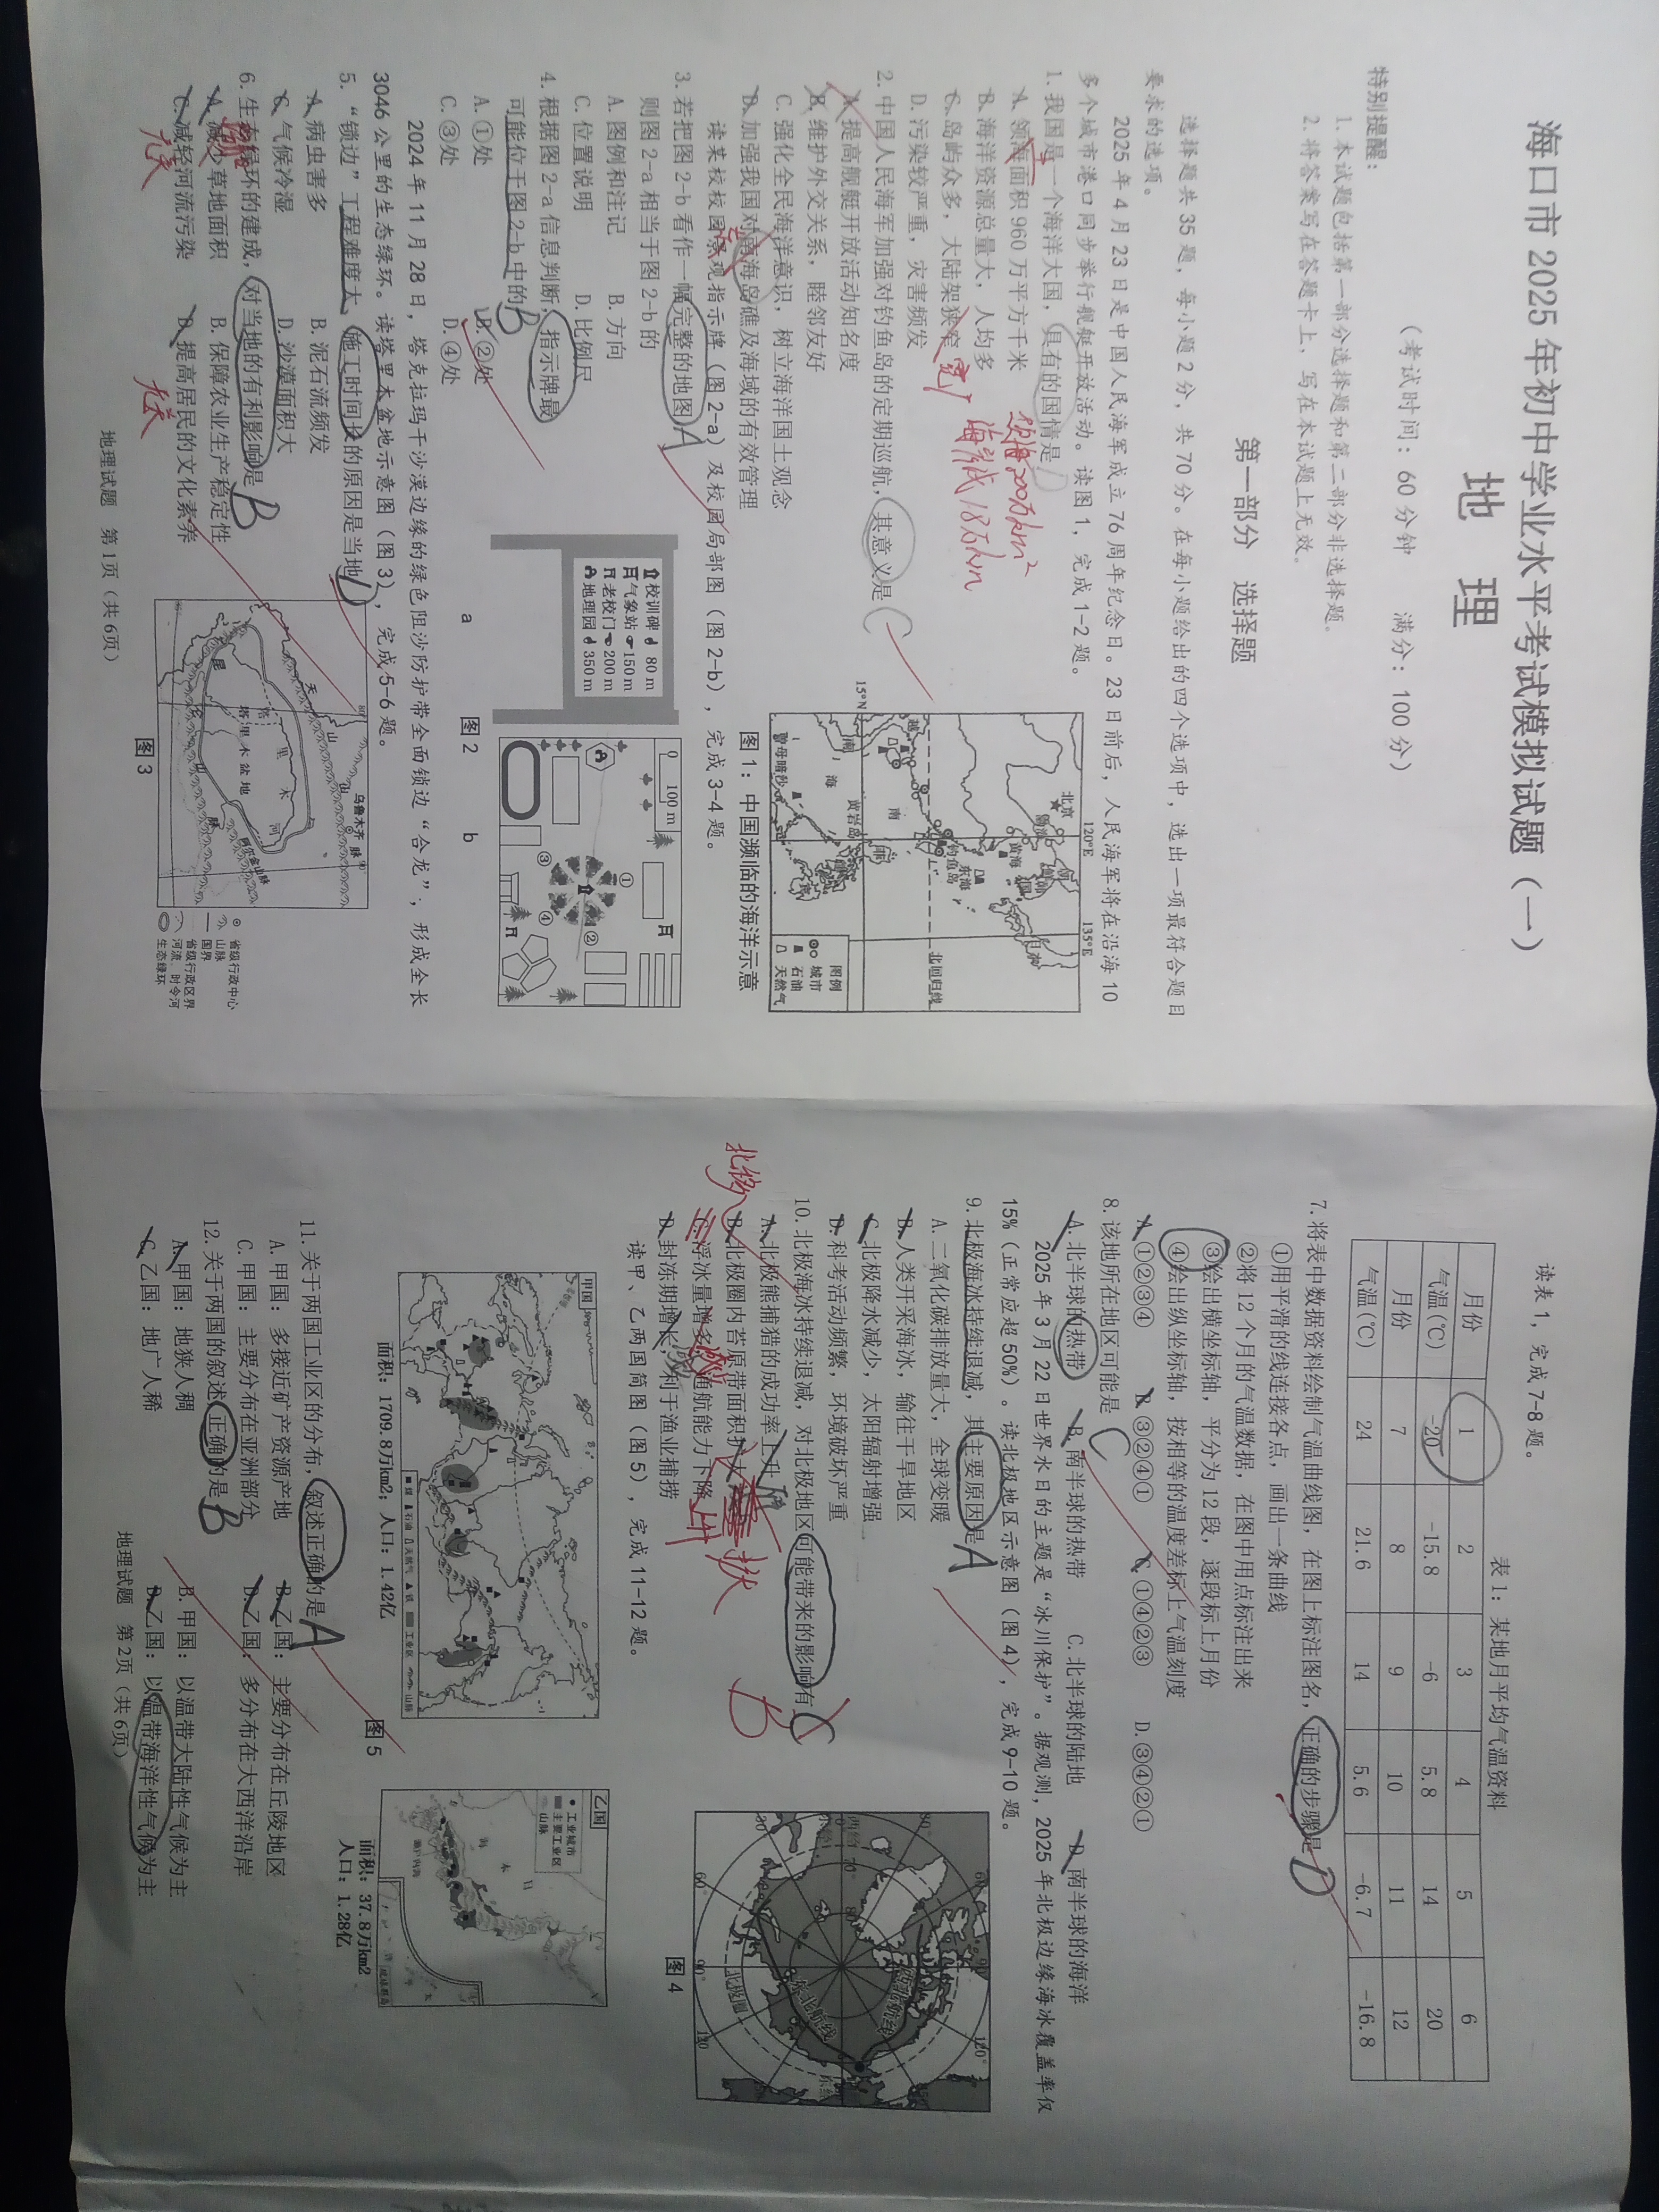 海口市2025年初中学业水平考试模拟试题（一）
地 理
（考试时间：60分钟 满分：100分）
特别提醒：
1. 本试题包括第一部分选择题和第二部分非选择题。
2. 将答案写在答题卡上，写在本试题上无效。
第一部分 选择题
选择题共35题，每小题2分，共70分。在每小题给出的四个选项中，选出一项最符合题目
要求的选项。
2025年4月23日是中国人民海军成立76周年纪念日。23日前后，人民海军将在沿海10
多个城市港口同步举行舰艇开放活动。读图1，完成1-2题。
1. 我国是一个海洋大国，具有的国情是
A. 领海面积960万平方千米
B. 海洋资源总量大，人均多
C. 岛屿众多，大陆架狭窄 宽
D. 污染较严重，灾害频发
领海300万km²
海岸线1.8万km
2. 中国人民海军加强对钓鱼岛的定期巡航，其意义是 C
A. 提高舰艇开放活动知名度
B. 维护外交关系，睦邻友好
C. 强化全民海洋意识，树立海洋国土观念
D. 加强我国对南海岛礁及海域的有效管理
15°N
120°E
135°E
北京
渤海
黄海
东海
钓鱼岛
北回归线
南
海
黄岩岛
曾母暗沙
图例
城市
石油
天然气
图1：中国濒临的海洋示意
读某校校园景观指示牌（图2-a）及校园局部图（图2-b），完成3-4题。
3. 若把图2-b看作一幅完整的地图， A
则图2-a相当于图2-b的
A. 图例和注记 B. 方向
C. 位置说明 D. 比例尺
4. 根据图2-a信息判断，指示牌最
可能位于图2-b中的 B
A. ①处 B. ②处
C. ③处 D. ④处
校训碑 80 m
气象站 150 m
老校门 200 m
地理园 350 m
a
0 100 m
①
②
③
④
b
图2
2024年11月28日，塔克拉玛干沙漠边缘的绿色阻沙防护带全面锁边“合龙”，形成全长
3046公里的生态绿环。读塔里木盆地示意图（图3），完成5-6题。
5. “锁边”工程难度大、施工时间长的原因是当地 D
A. 病虫害多 B. 泥石流频发
C. 气候冷湿 D. 沙漠面积大
6. 生态绿环的建成，对当地的有利影响是 B
A. 减少草地面积 B. 保障农业生产稳定性
C. 减轻河流污染 D. 提高居民的文化素养
无关
无关
天
山
山
脉
乌鲁木齐
塔
里
木
河
塔里木盆地
昆
仑
山
脉
阿尔金山脉
省级行政中心
山脉
国界
省级行政区界
河流、时令河
生态绿环
图3
地理试题 第1页（共6页）
读表1，完成7-8题。
表1：某地月平均气温资料
月份 1 2 3 4 5 6
气温(℃) -20 -15.8 -6 5.8 14 20
月份 7 8 9 10 11 12
气温(℃) 24 21.6 14 5.6 -6.7 -16.8
7. 将表中数据资料绘制气温曲线图，在图上标注图名，正确的步骤是 D
①用平滑的线连接各点，画出一条曲线
②将12个月的气温数据，在图中用点标注出来
③绘出横坐标轴，平分为12段，逐段标上月份
④绘出纵坐标轴，按相等的温度差标上气温刻度
A. ①②③④ B. ③②④① C. ①④②③ D. ③④②①
8. 该地所在地区可能是 C
A. 北半球的热带 B. 南半球的热带 C. 北半球的陆地 D. 南半球的海洋
2025年3月22日世界水日的主题是“冰川保护”。据观测，2025年北极边缘海冰覆盖率仅
15%（正常应超50%）。读北极地区示意图（图4），完成9-10题。
9. 北极海冰持续退减，其主要原因是 A
A. 二氧化碳排放量大，全球变暖
B. 人类开采海冰，输往干旱地区
C. 北极降水减少，太阳辐射增强
D. 科考活动频繁，环境破坏严重
10. 北极海冰持续退减，对北极地区可能带来的影响有 C B
A. 北极熊捕猎的成功率上升
B. 北极圈内苔原带面积扩大 扩
C. 浮冰量增多，通航能力下降 上升
D. 封冻期增长，利于渔业捕捞
北移
西北航线
东北航线
北极圈
图4
读甲、乙两国简图（图5），完成11-12题。
甲国
煤 石油 天然气 铁 工业区 山脉
面积：1709.8万km2；人口：1.42亿
乙国
工业城市
主要工业区
山脉
日
本
海
面积：37.8万km2
人口：1.28亿
图5
11. 关于两国工业区的分布，叙述正确的是 A
A. 甲国：多接近矿产资源产地 B. 乙国：主要分布在丘陵地区
C. 甲国：主要分布在亚洲部分 D. 乙国：多分布在大西洋沿岸
12. 关于两国的叙述，正确的是 B
A. 甲国：地狭人稠 B. 甲国：以温带大陆性气候为主
C. 乙国：地广人稀 D. 乙国：以温带海洋性气候为主
地理试题 第2页（共6页）